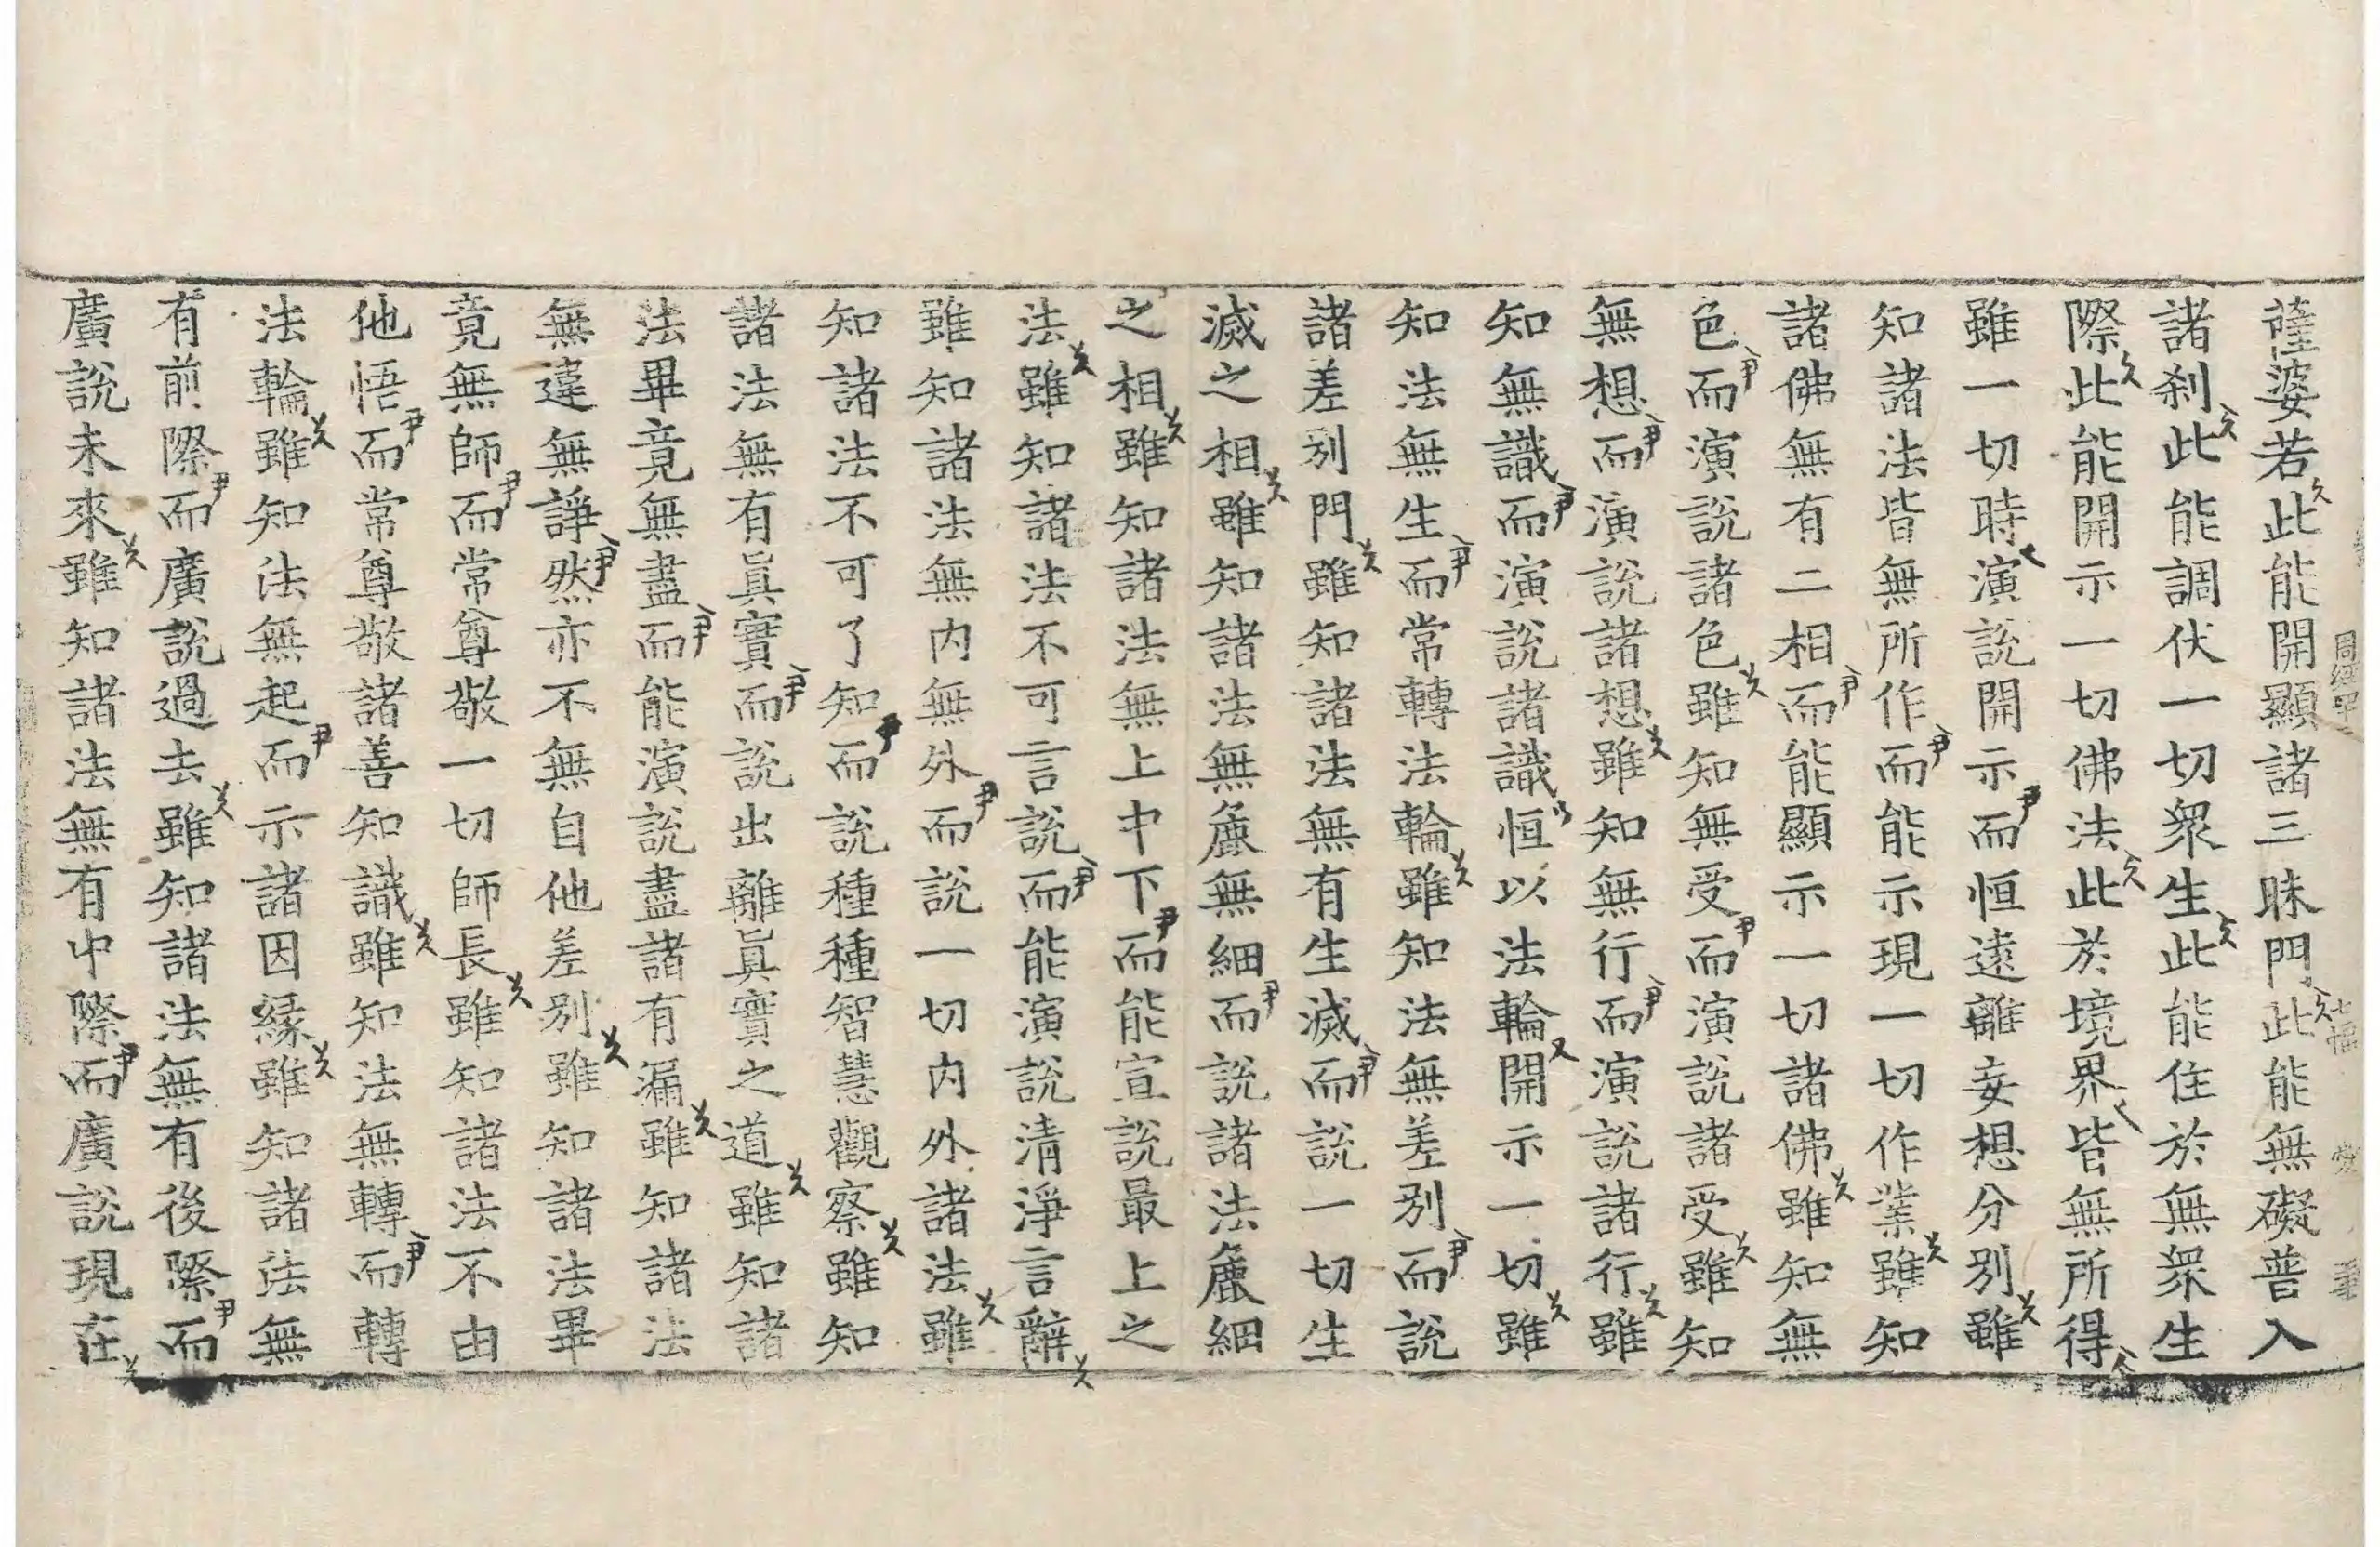 薩婆若此能開顯諸三昧門此能無礙普入
諸刹此能調伏一切衆生此能住於無衆生
際此能開示一切佛法此於境界皆無所得
雖一切時演說開示而恒遠離妄想分別雖
知諸法皆無所作而能示現一切作業雖知
諸佛無有二相而能顯示一切諸佛雖知無
色而演說諸色雖知無受而演說諸受雖知
無想而演說諸想雖知無行而演說諸行雖
知無識而演說諸識恒以法輪開示一切雖
知法無生而常轉法輪雖知法無差別而說
諸差別門雖知諸法無有生滅而說一切生
滅之相雖知諸法無麁無細而說諸法麁細
之相雖知諸法無上中下而能宣說最上之
法雖知諸法不可言說而能演說清淨言辭
雖知諸法無內無外而說一切內外諸法雖
知諸法不可了知而說種種智慧觀察雖知
諸法無有眞實而說出離眞實之道雖知諸
法畢竟無盡而能演說盡諸有漏雖知諸法
無違無諍然亦不無自他差別雖知諸法畢
竟無師而常尊敬一切師長雖知諸法不由
他悟而常尊敬諸善知識雖知法無轉而轉
法輪雖知法無起而示諸因緣雖知諸法無
有前際而廣說過去雖知諸法無有後際而
廣說未來雖知諸法無有中際而廣說現在